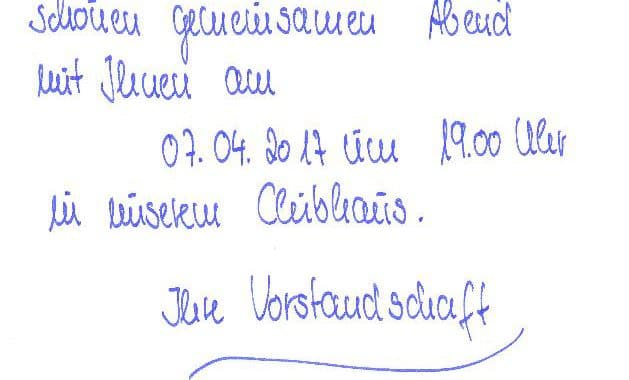 schönen gemeinsamen Abend
mit Ihnen am
07.04.2017 um 19.00 Uhr
in unserem Clubhaus.
Ihre Vorstandschaft